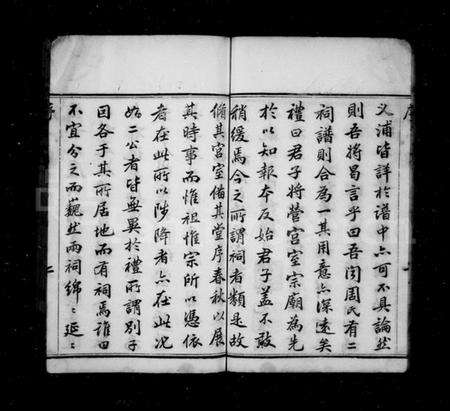 序
義浦皆詳於譜中亦可不具論然
則吾將曷言乎曰吾聞周氏有二
祠譜則合為一其用意亦深遠矣
禮曰君子將營宮室宗廟為先
於以知報本反始君子蓋不敢
稍緩焉今之所謂祠者類是故
脩其宮室備其堂序春秋以展
其時事而惟祖惟宗所以憑依
者在此所以陟降者亦在此況
始二公者皆無異於禮所謂別子
因各于其所居地而有祠焉誰曰
不宜分之而巍然兩祠綿ミ延ミ
序
二